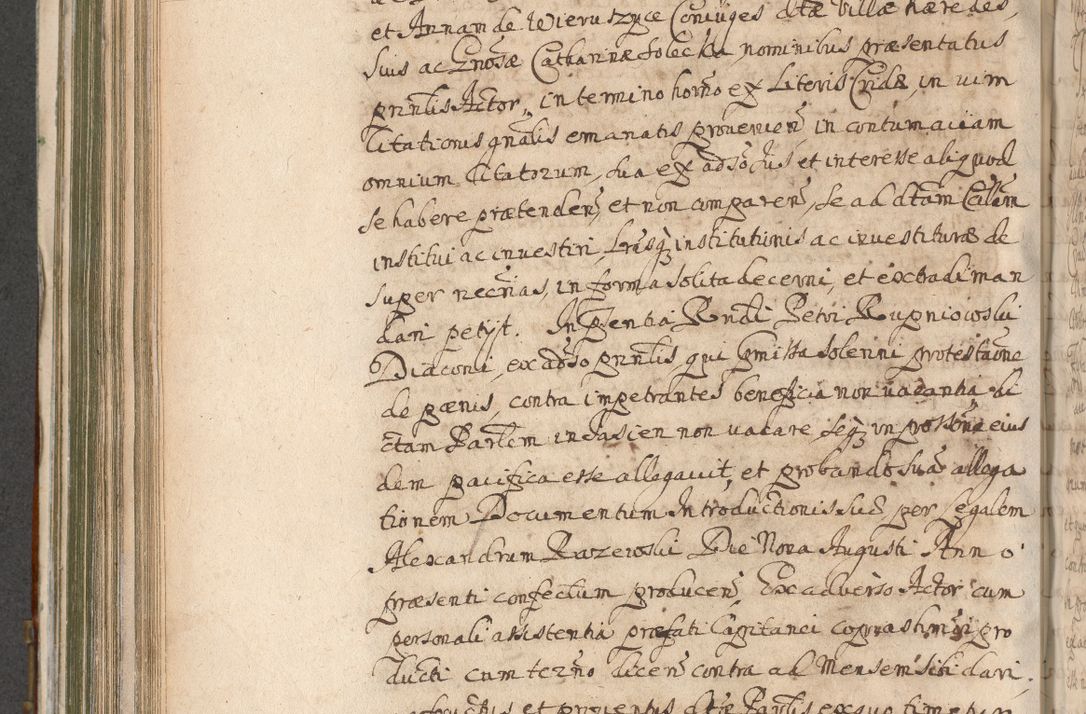 et Annam de Wieruszyce Coniuges dtæ villæ hæredes,
suis ac Gnosæ Catharinæ Solecka, nominibus præsentatus
prnlis Actor, in termino horno ex Literis Cridæ, in uim
Citationis gnalis emanatis provenien, in contumaciam
omnium Citatorum, sua ex adso Jus et interesse aliquod
se habere prætenden, et non comparen, se ad dtam Ecclam
institui ac investiri, Lrasq institutionis ac investituræ de
super necrias, in forma solita decerni, et extradi man
dari petijt. In Psentia Rndi Petri Rupniowski
Diaconi, ex adso prnlis, qui præmissa solenni protestaone
de pænis, contra impetrantes beneficia non vacantia di
ctam Parlem indasien non vacare, seq in possone eius
dem pacifica esse allegavit, et probando suã allega
tionem Documentum Introductionis suæ per legalem
Alexandrum Razewski Die Nona Augusti Anno
præsenti confectum producen, Ex adverso Actor cum
personali assistentia præfati Capitanei copiastim pro
ducti cum terno dicen contra ad Mensem sibi dari.
fructus et proventus dtæ Parlis ex quo timetur